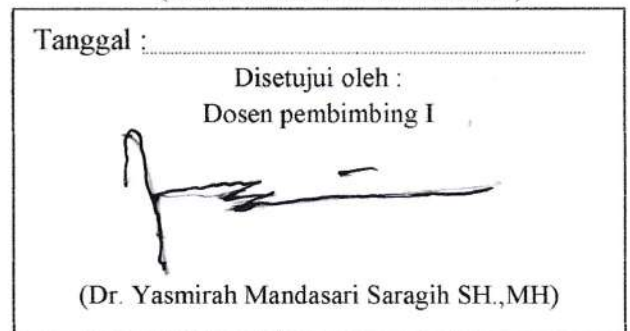 Tanggal :
Disetujui oleh :
Dosen pembimbing I
(Dr. Yasmirah Mandasari Saragih SH.,MH)